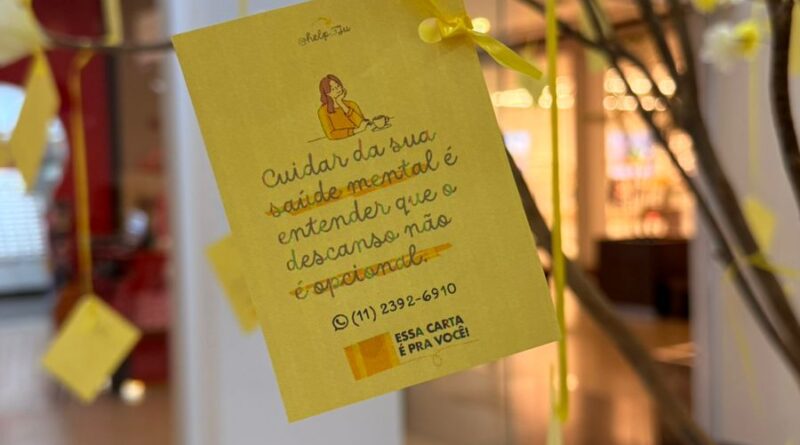 @help.Tsu
Cuidar da sua
saúde mental é
entender que o
descanso não
é opcional.
(11) 2392-6910
ESSA CARTA
É PRA VOCÊ!